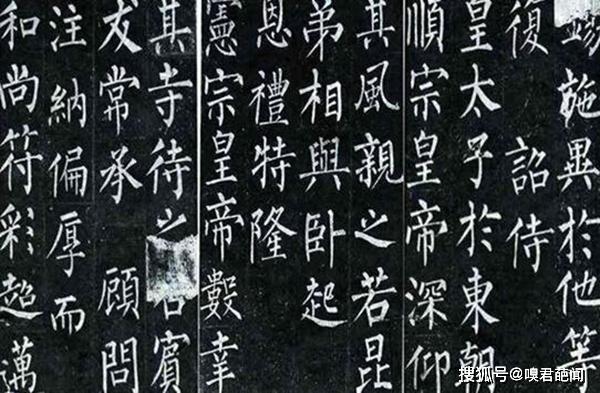 錫施異於他等
復 詔侍
皇太子於東朝
順宗皇帝深仰
其風親之若昆
弟相與臥起
恩禮特隆
憲宗皇帝數幸
其寺待之若賓
友常承 顧問
注納偏厚而
和尚符彩超邁
搜狐号@嗅君葩闻